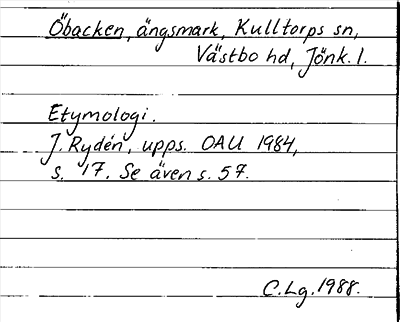 Öbacken, ängsmark, Kulltorps sn,
Västbo hd, Jönk. l.
Etymologi.
J. Rydén, upps. OAU 1984,
s. 17. Se även s. 57.
C.Lg. 1988.